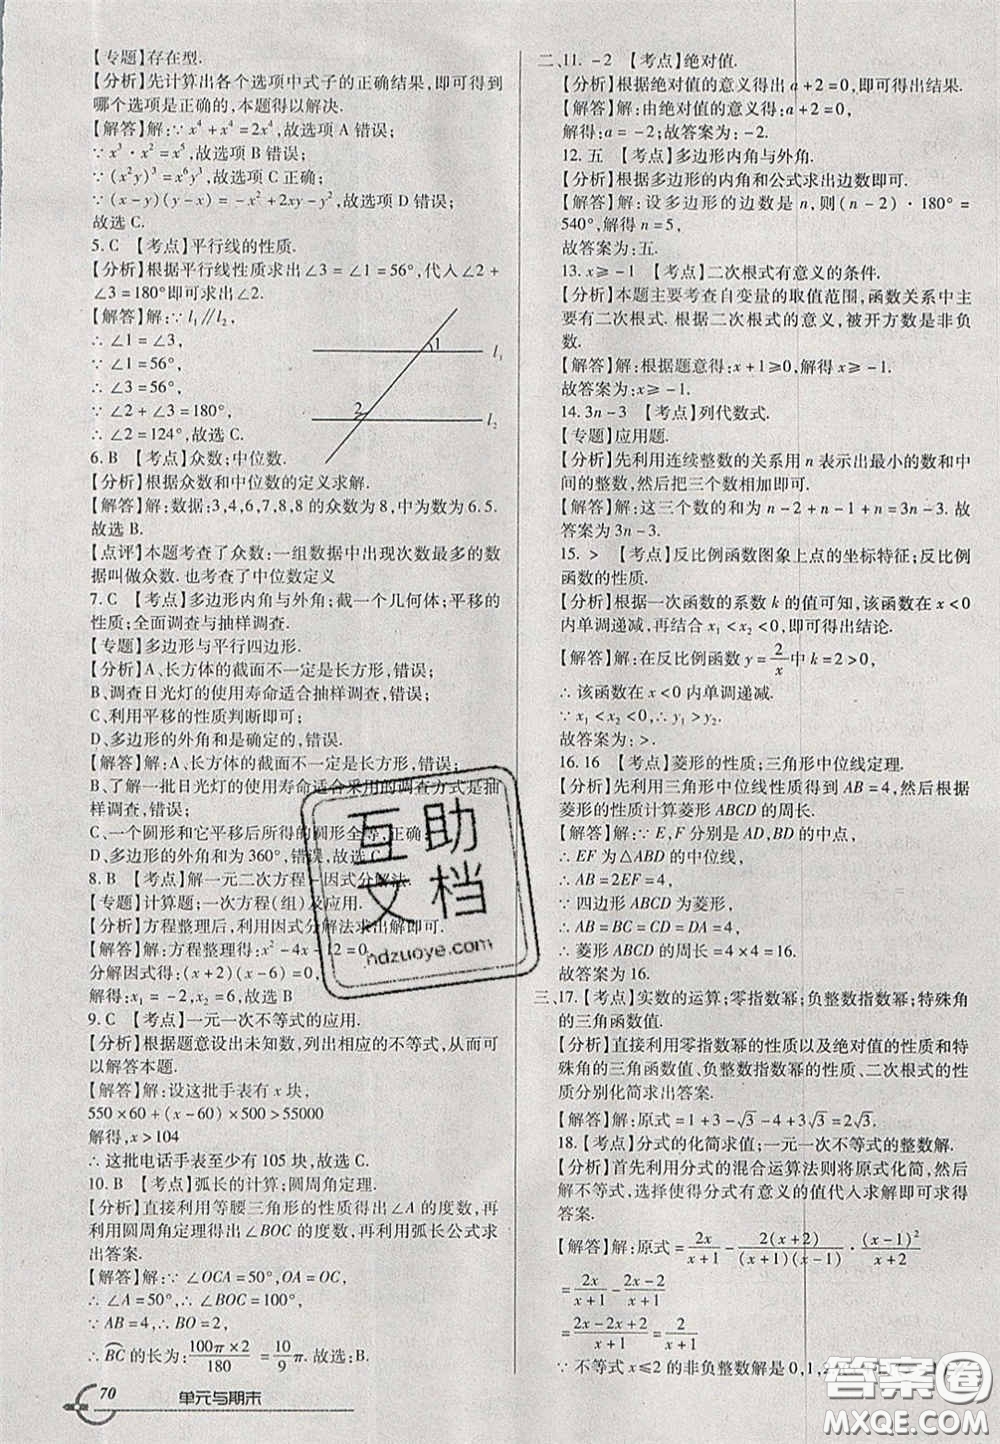 【专题】存在型.
【分析】先计算出各个选项中式子的正确结果,即可得到
哪个选项是正确的,本题得以解决.
【解答】解:∵x⁴+x⁴=2x⁴,故选项A错误;
∵x³·x²=x⁵,故选项B错误;
∵(x²y)³=x⁶y³,故选项C正确;
∵(x-y)(y-x)=-x²+2xy-y²,故选项D错误;
故选C.
5.C 【考点】平行线的性质.
【分析】根据平行线性质求出∠3=∠1=56°,代入∠2+
∠3=180°即可求出∠2.
【解答】解:∵l₁∥l₂,
∴∠1=∠3,
∵∠1=56°,
∴∠3=56°,
∵∠2+∠3=180°,
∴∠2=124°,故选C.
1
l₁
2
l₂
6.B 【考点】众数;中位数.
【分析】根据众数和中位数的定义求解.
【解答】解:数据:3,4,6,7,8,8的众数为8,中为数为6.5.
故选B.
【点评】本题考查了众数:一组数据中出现次数最多的数
据叫做众数.也考查了中位数定义
7.C 【考点】多边形内角与外角;截一个几何体;平移的
性质;全面调查与抽样调查.
【专题】多边形与平行四边形.
【分析】A、长方体的截面不一定是长方形,错误;
B、调查日光灯的使用寿命适合抽样调查,错误;
C、利用平移的性质判断即可;
D、多边形的外角和是确定的,错误.
【解答】解:A、长方体的截面不一定是长方形,错误;
B、了解一批日光灯的使用寿命适合采用的调查方式是抽
样调查,错误;
C、一个圆形和它平移后所得的圆形全等,正确;
D、多边形的外角和为360°,错误,故选C
8.B 【考点】解一元二次方程-因式分解法.
【专题】计算题;一次方程(组)及应用.
【分析】方程整理后,利用因式分解法求出解即可.
【解答】解:方程整理得:x²-4x-12=0,
分解因式得:(x+2)(x-6)=0,
解得:x₁=-2,x₂=6,故选B
9.C 【考点】一元一次不等式的应用.
【分析】根据题意设出未知数,列出相应的不等式,从而可
以解答本题.
【解答】解:设这批手表有x块,
550×60+(x-60)×500>55000
解得,x>104
∴这批电话手表至少有105块,故选C.
10.B 【考点】弧长的计算;圆周角定理.
【分析】直接利用等腰三角形的性质得出∠A的度数,再
利用圆周角定理得出∠BOC的度数,再利用弧长公式求
出答案.
【解答】解:∵∠OCA=50°,OA=OC,
∴∠A=50°,∴∠BOC=100°,
∵AB=4,∴BO=2,
∴BC的长为:100π×2/180=10/9π.故选:B.
70 单元与期末
二、11.-2 【考点】绝对值.
【分析】根据绝对值的意义得出a+2=0,即可得出结果.
【解答】解:由绝对值的意义得:a+2=0,
解得:a=-2;故答案为:-2.
12.五 【考点】多边形内角与外角.
【分析】根据多边形的内角和公式求出边数即可.
【解答】解:设多边形的边数是n,则(n-2)·180°=
540°,解得n=5,
故答案为:五.
13.x≥-1 【考点】二次根式有意义的条件.
【分析】本题主要考查自变量的取值范围,函数关系中主
要有二次根式.根据二次根式的意义,被开方数是非负
数.
【解答】解:根据题意得:x+1≥0,解得x≥-1.
故答案为:x≥-1.
14.3n-3 【考点】列代数式.
【专题】应用题.
【分析】先利用连续整数的关系用n表示出最小的数和中
间的整数,然后把三个数相加即可.
【解答】解:这三个数的和为n-2+n-1+n=3n-3.故
答案为3n-3.
15.> 【考点】反比例函数图象上点的坐标特征;反比例
函数的性质.
【分析】根据一次函数的系数k的值可知,该函数在x<0
内单调递减,再结合x₁<x₂<0,即可得出结论.
【解答】解:在反比例函数y=2/x中k=2>0,
∴该函数在x<0内单调递减.
∵x₁<x₂<0,∴y₁>y₂.
故答案为:>.
16.16 【考点】菱形的性质;三角形中位线定理.
【分析】先利用三角形中位线性质得到AB=4,然后根据
菱形的性质计算菱形ABCD的周长.
【解答】解:∵E,F分别是AD,BD的中点,
∴EF为△ABD的中位线,
∴AB=2EF=4,
∵四边形ABCD为菱形,
∴AB=BC=CD=DA=4,
∴菱形ABCD的周长=4×4=16.
故答案为16.
三、17.【考点】实数的运算;零指数幂;负整数指数幂;特殊角
的三角函数值.
【分析】直接利用零指数幂的性质以及绝对值的性质和特
殊角的三角函数值、负整数指数幂的性质、二次根式的性
质分别化简求出答案.
【解答】解:原式=1+3-√3-4+3√3=2√3.
18.【考点】分式的化简求值;一元一次不等式的整数解.
【分析】首先利用分式的混合运算法则将原式化简,然后
解不等式,选择使得分式有意义的值代入求解即可求得
答案.
【解答】解:原式=2x/(x+1)-2(x+2)/((x+1)(x-1))·(x-1)²/(x+2)
=2x/(x+1)-(2x-2)/(x+1)
=(2x-2x+2)/(x+1)=2/(x+1)
∵不等式x≤2的非负整数解是0,1,2
互助
文档
hdzuoye.com
答案圈
MXQE.COM